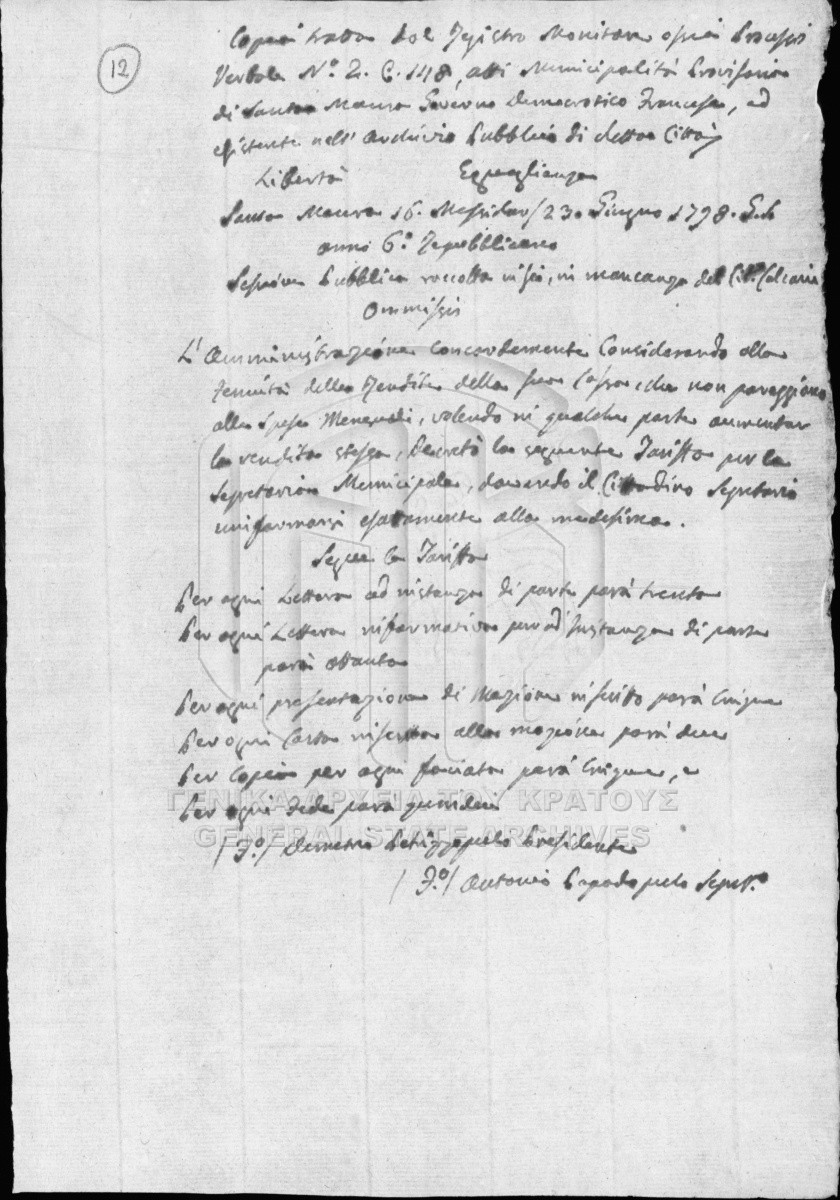 12
Copia tratta dal Registro Monitore ossia Processi
Verbale N.o 2. C. 148, atti Municipalità Provisoria
di Santa Maura Governo Democratico Francese, ed
esistente nell' Archivio Pubblico di detta Città
Libertà Eguaglianza
Santa Maura 16. Messidor / 23. Giugno 1798.
anno 6.o Repubblicano
Sessione Pubblica raccolta in mancanza del Cit.
Ommissis
L' Amministrazione concordemente Considerando alla
tenuità delle Rendite della sua Cassa, che non pareggiano
alle spese Mensuali, volendo in qualche parte aumentar
la rendita stessa, Decretò la seguente Tariffa per la
Segretaria Municipale, dovendo il Cittadino Segretario
uniformarsi esatamente alla medesima.
Segue la Tariffa
Per ogni Lettera ad instanza di parte parà trenta
Per ogni Lettera informativa pur ad Instanza di parte
parà ottanta
Per ogni presentazione di Mazione in scritto parà Cinque
Per ogni Carta inserta alla mazione parà due
Per Copia per ogni faciata parà Cinque, e
Per ogni Fede parà quindeci
ΓΕΝΙΚΑ ΑΡΧΕΙΑ ΤΟΥ ΚΡΑΤΟΥΣ
GENERAL STATE ARCHIVES
/ F.o / Demetrio Petrizzopulo Presidente
/ F.o / Antonio Papadopulo Segret.o